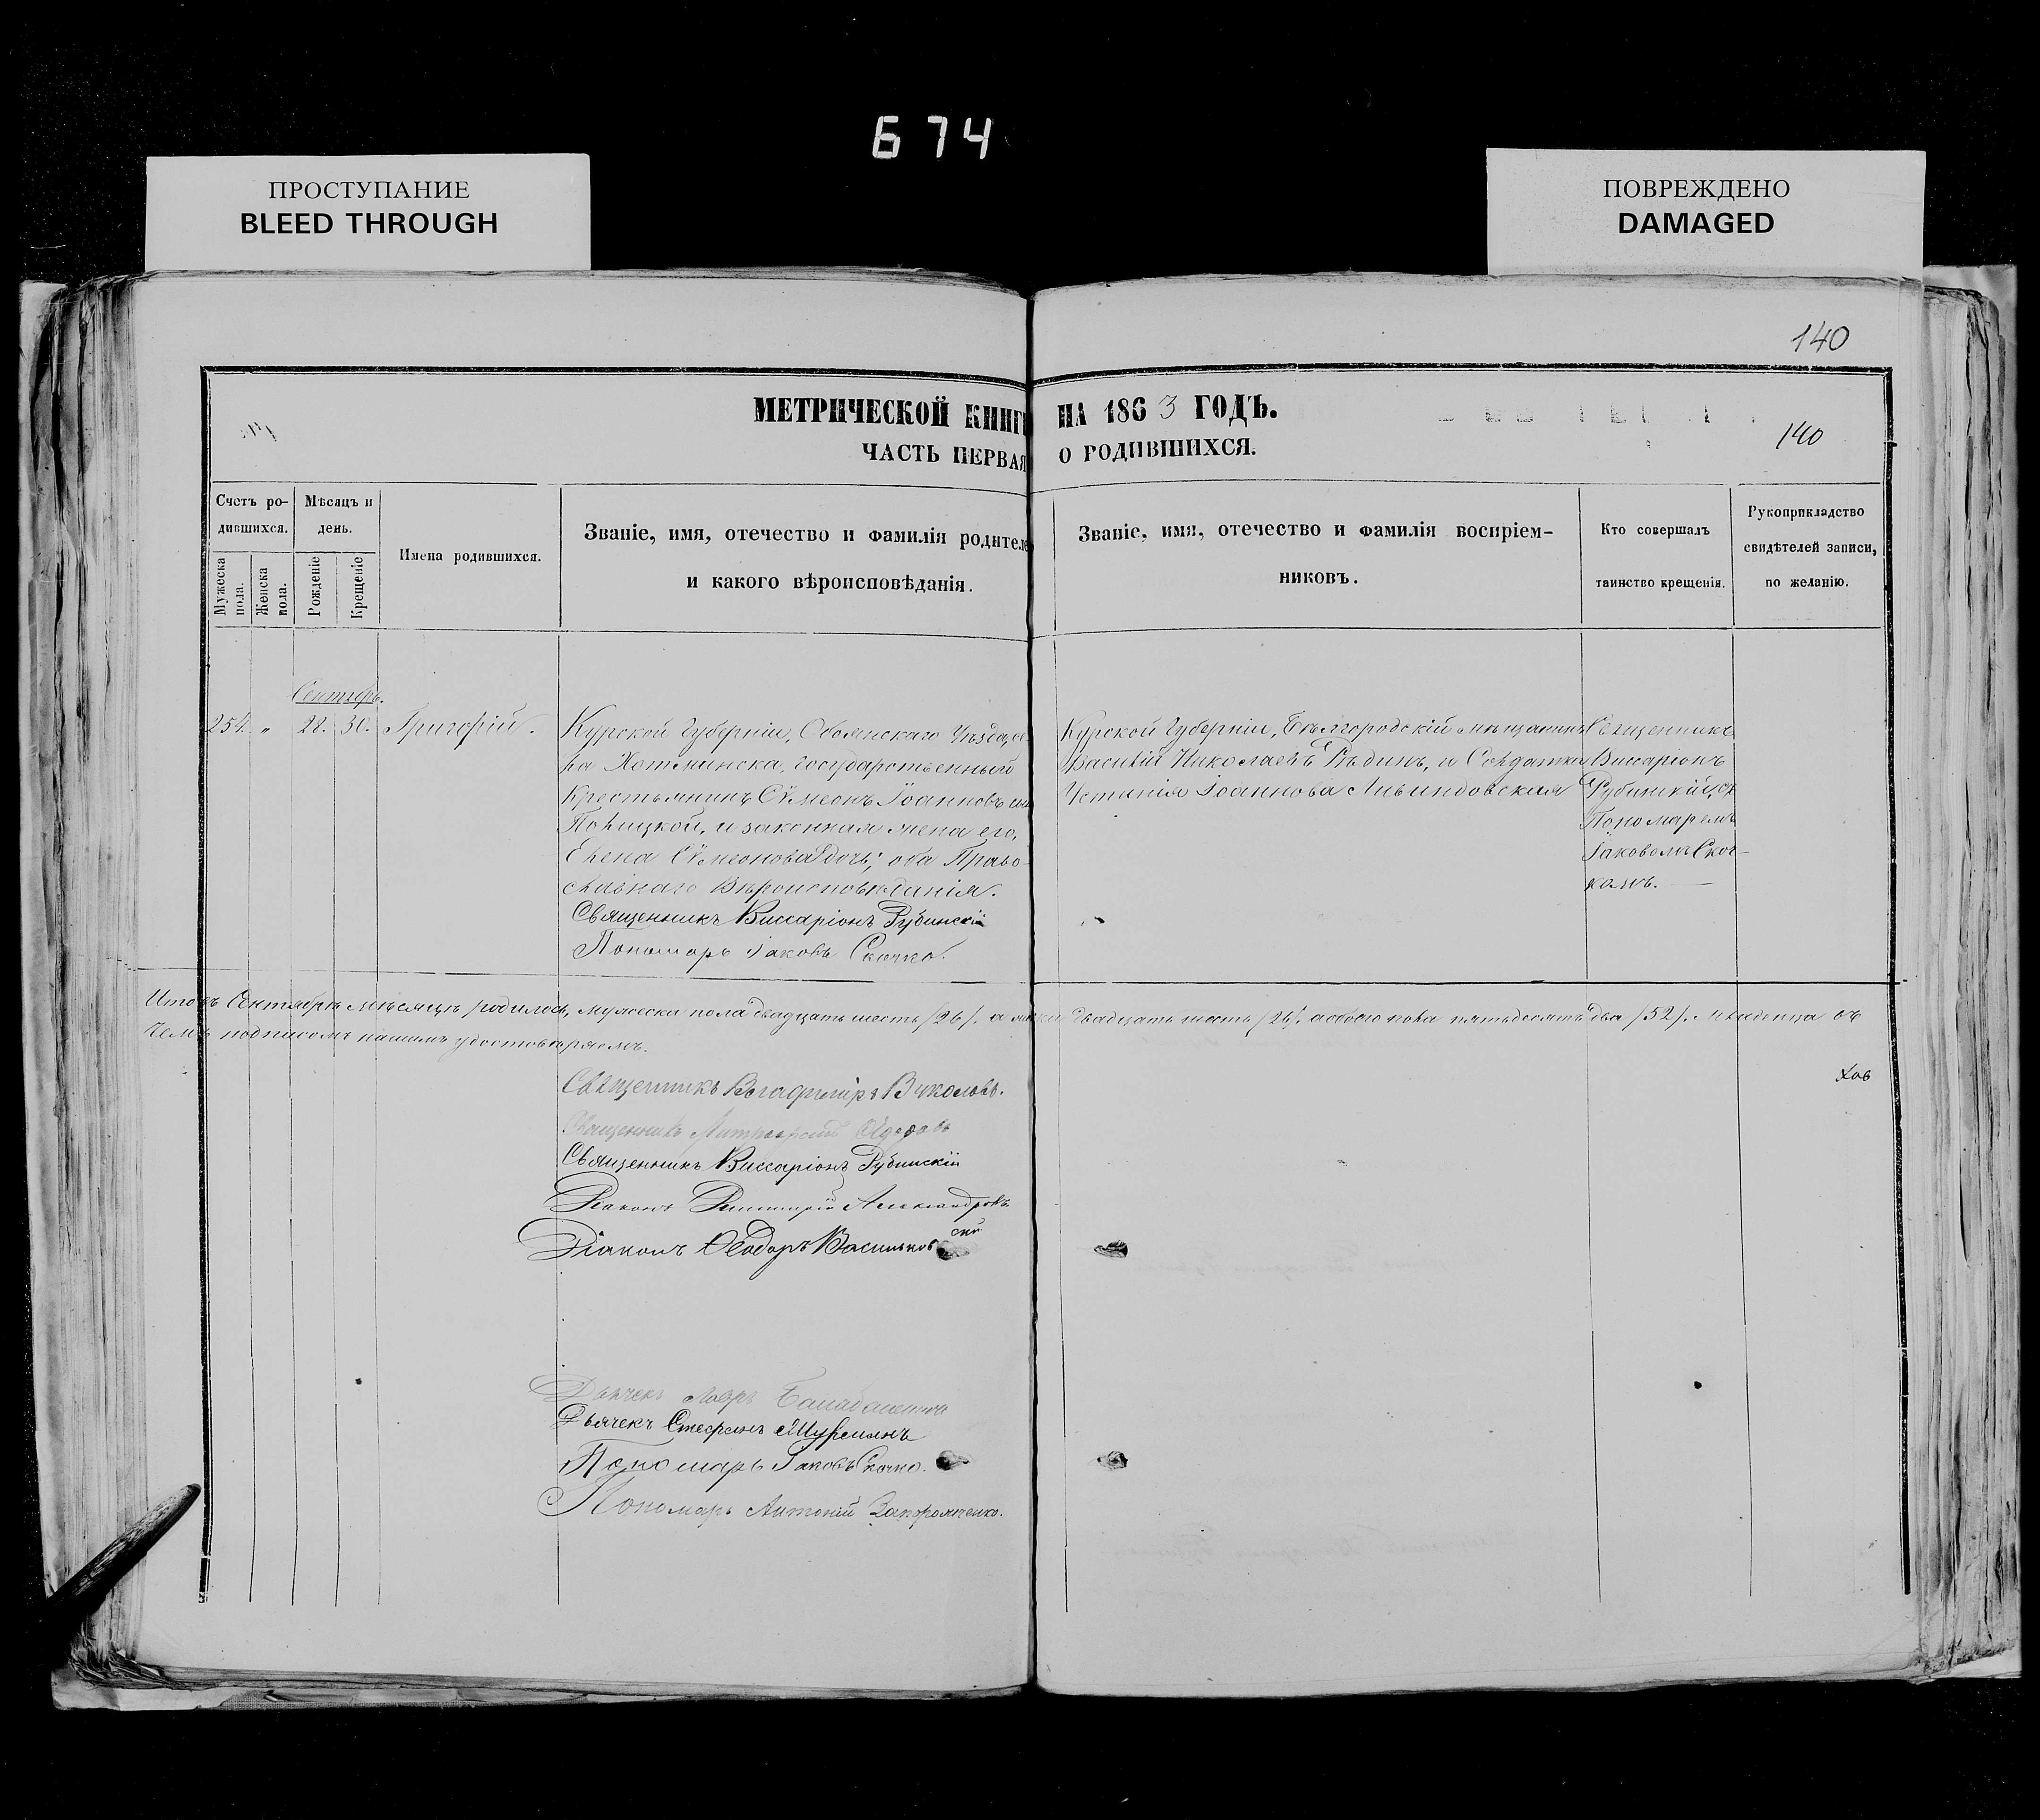 674
ПРОСТУПАНИЕ
BLEED THROUGH
ПОВРЕЖДЕНО
DAMAGED
140
МЕТРИЧЕСКОЙ КНИГИ НА 1863 ГОДЪ.
140
ЧАСТЬ ПЕРВАЯ О РОДИВШИХСЯ.
Счетъ ро-
дившихся.
Мужеска
пола.
Женска
пола.
Мѣсяцъ и
день.
Рожденіе
Крещеніе
Имена родившихся.
Званіе, имя, отечество и фамилія родителе
и какого вѣроисповѣданія.
Званіе, имя, отечество и фамилія воспріем-
никовъ.
Кто совершалъ
таинство крещенія.
Рукоприкладство
свидѣтелей записи,
по желанію.
Сентябрь.
254 „ 28. 30. Григорій.
Курской Губерніи, Обоянскаго Уѣзда, се
ла государственный
Крестьянинъ Сѵмеонъ Іоанновъ
и законная жена его,
Елена Сѵмеонова дочь; оба Право-
славнаго Вѣроисповѣданія.
Священникъ Виссаріонъ Рубинскій
Пономарь Іаковъ Скочко.
Курской Губерніи, Бѣлгородскій мѣщанинъ
Василій Николаевъ Рѣдинъ, и Солдатка
Устинія Іоаннова
Священникъ
Виссаріонъ
Рубинскій, съ
Пономаремъ
Іаковомъ Скоч-
комъ.
Итого въ Сентябрѣ мѣсяцѣ родилось, мужеска пола двадцать шесть /26/. а двадцать шесть /26/. обоего пола пятьдесятъ два /52/. младенца въ
чемъ подписомъ нашимъ удостовѣряемъ.
Священникъ Владиміръ Вуколовъ.
Священникъ
Священникъ Виссаріонъ Рубинскій
Діаконъ Димитрій Александровъ
Діаконъ Ѳеодоръ Васильковскій
Дьячекъ Лавръ
Дьячекъ Стефанъ
Пономарь Іаковъ Скочко.
Пономарь Антоній Запорожченко.